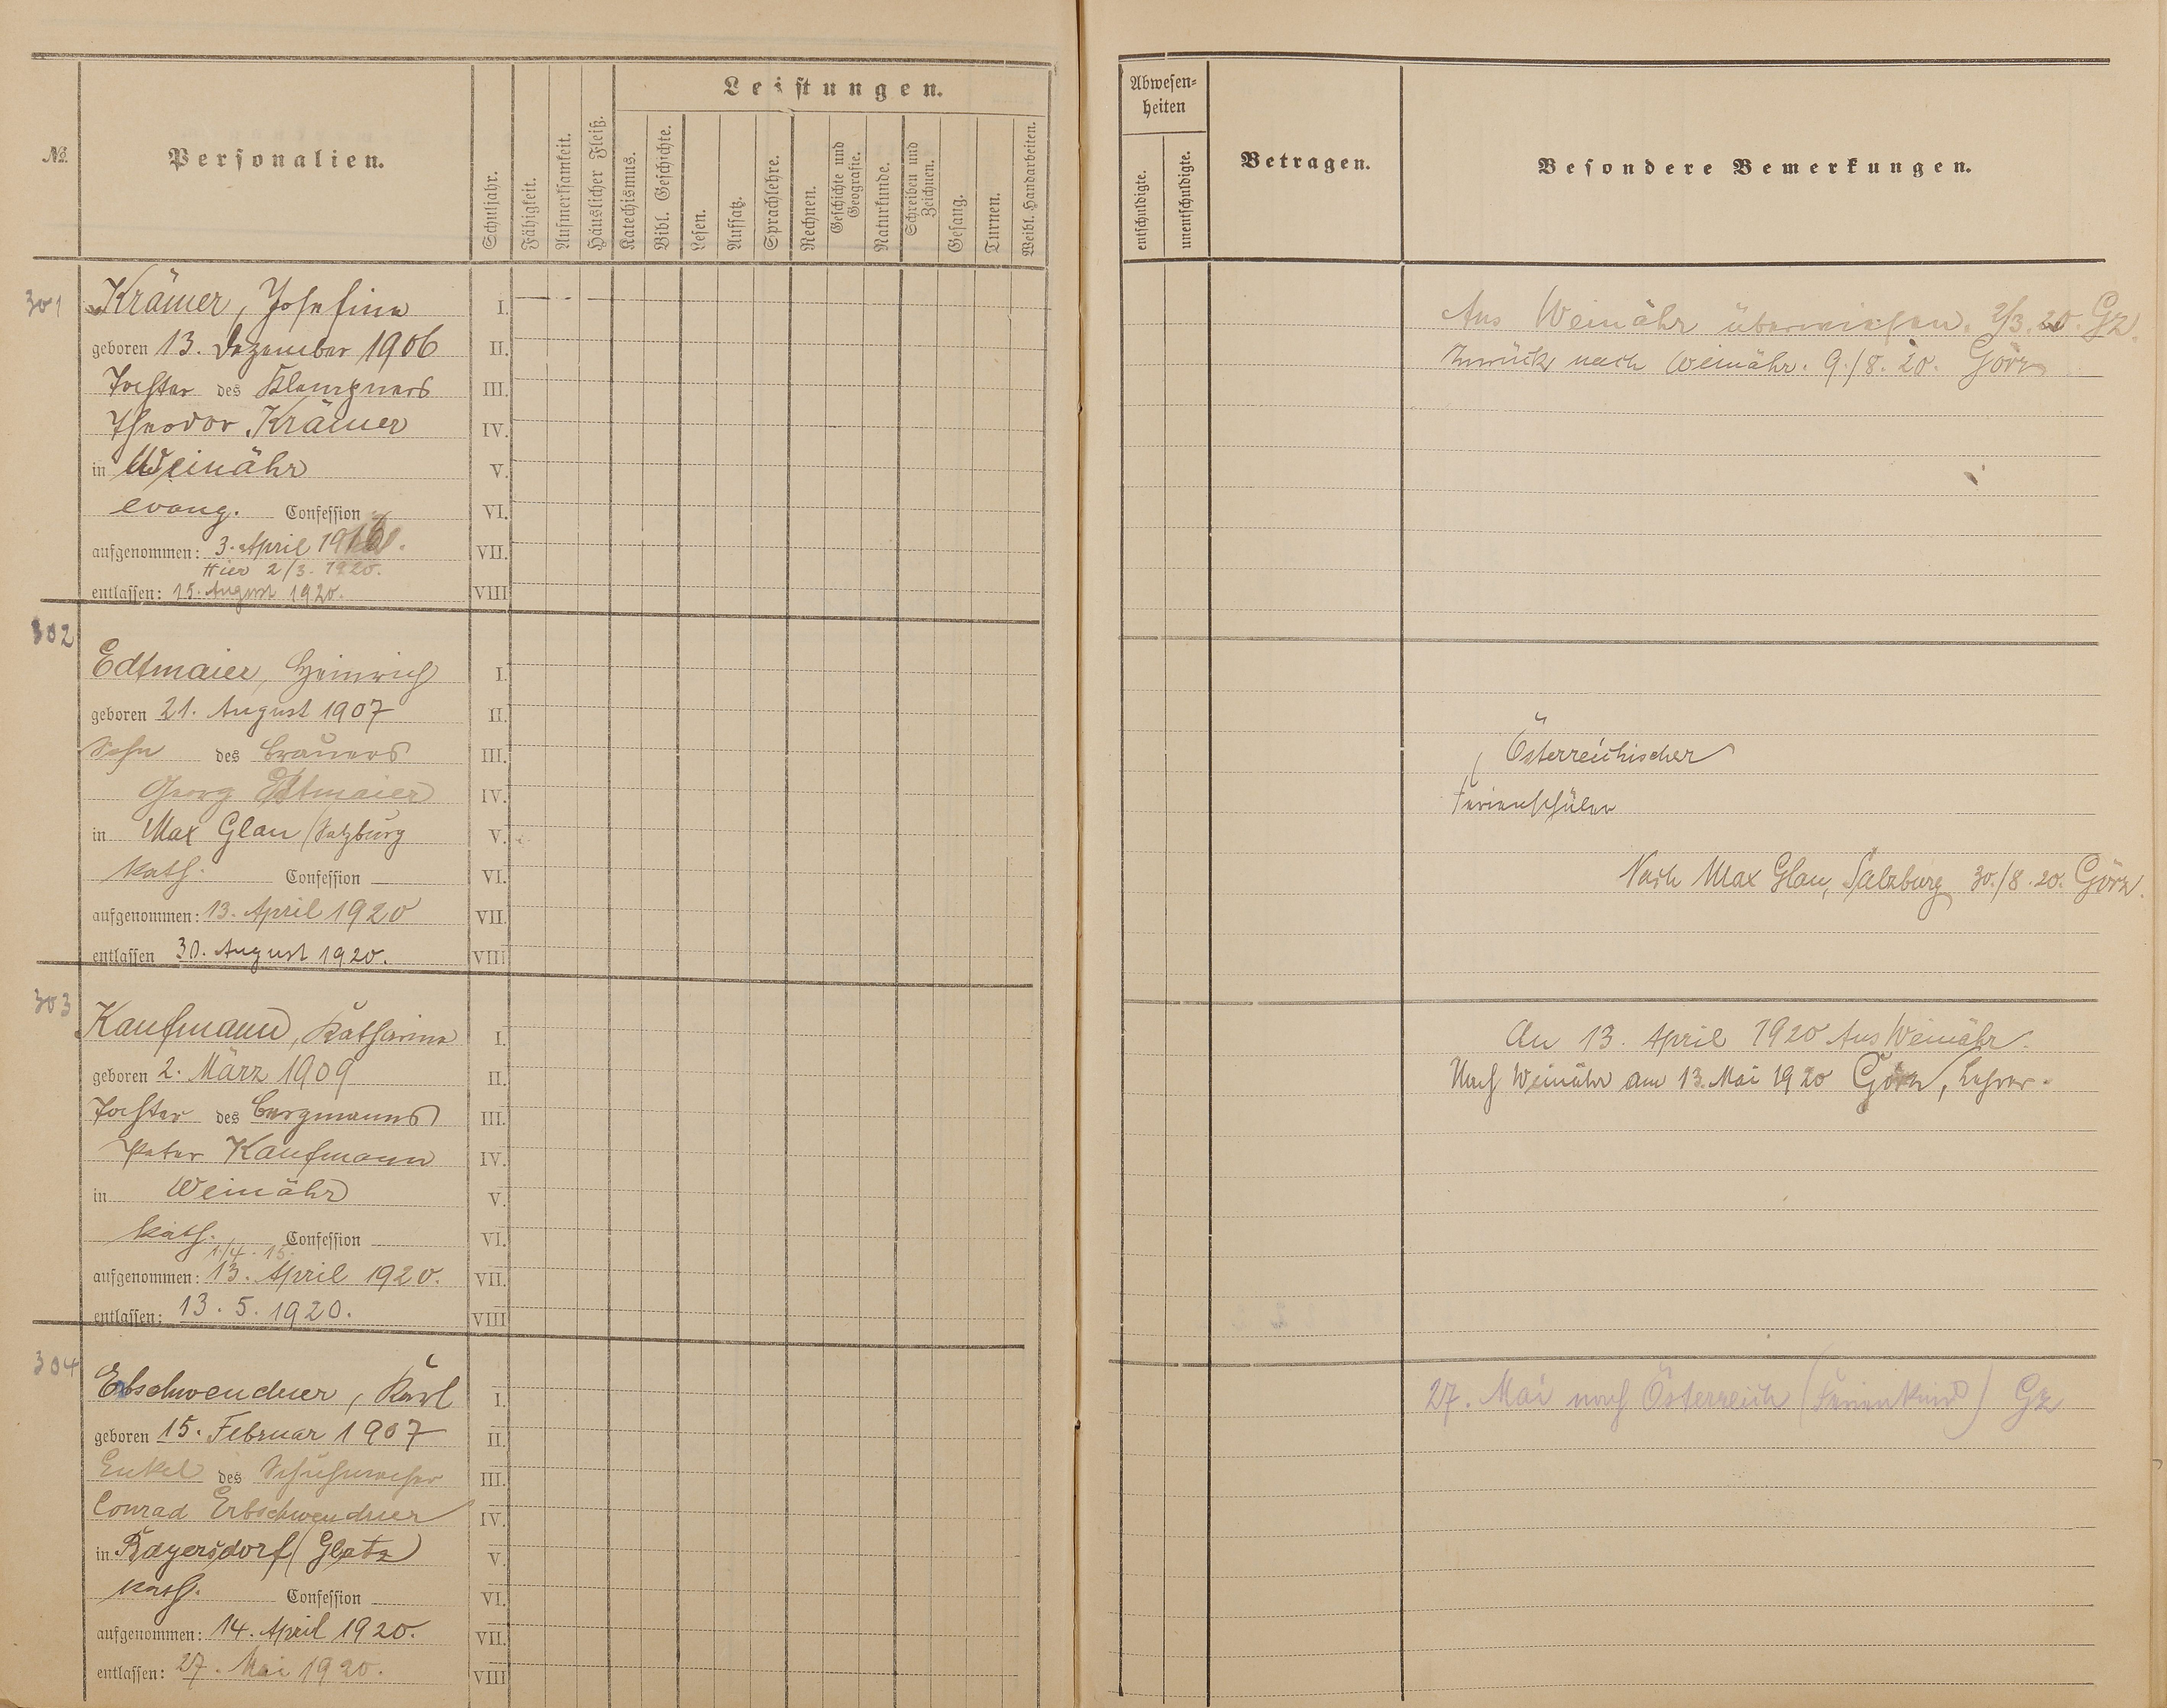 Leistungen.
№
Personalien.
Schuljahr.
Fähigkeit.
Aufmerksamkeit.
Häuslicher Fleiß.
Katechismus.
Bibl. Geschichte.
Lesen.
Aufsatz.
Sprachlehre.
Rechnen.
Geschichte und
Geografie.
Naturkunde.
Schreiben und
Zeichnen.
Gesang.
Turnen.
Weibl. Handarbeiten.
Abwesen-
heiten
entschuldigte.
unentschuldigte.
Betragen.
Besondere Bemerkungen.
301
Krämer, Josefine I.
geboren 13. Dezember 1906 II.
Tochter des Klempners III.
Theodor Krämer IV.
in Weinähr V.
evang. Confession VI.
aufgenommen: 3. April VII.
Hier 2/3. 1920.
entlassen: 15. August 1920. VIII
Aus Weinähr überwiesen. 2/3. 20. Gz.
Zurück nach Weinähr. 9./8. 20. Görz
302
Edtmaier, Heinrich I.
geboren 21. August 1907 II.
Sohn des Brauers III.
Georg Edtmaier IV.
in Max Glan / Salzburg V.
kath. Confession VI.
aufgenommen: 13. April 1920 VII.
entlassen 30. August 1920. VIII
Österreichischer
Ferienschüler
Nach Max Glan, Salzburg 30./8. 20. Görz.
303
Kaufmann, Katharina I.
geboren 2. März 1909 II.
Tochter des Bergmanns III.
Peter Kaufmann IV.
in Weinähr V.
kath. Confession VI.
1./4. 15.
aufgenommen: 13. April 1920. VII.
entlassen: 13. 5. 1920. VIII
An 13. April 1920 Aus Weinähr.
Nach Weinähr am 13. Mai 1920 Görz, Lehrer.
304
Erbschwendner, Karl I.
geboren 15. Februar 1907 II.
Enkel des Schuhmacher III.
Conrad Erbschwendner IV.
in Rayersdorf (Glatz) V.
kath. Confession VI.
aufgenommen: 14. April 1920. VII.
entlassen: 27. Mai 1920. VIII
27. Mai nach Österreich (Ferienkind) Gz